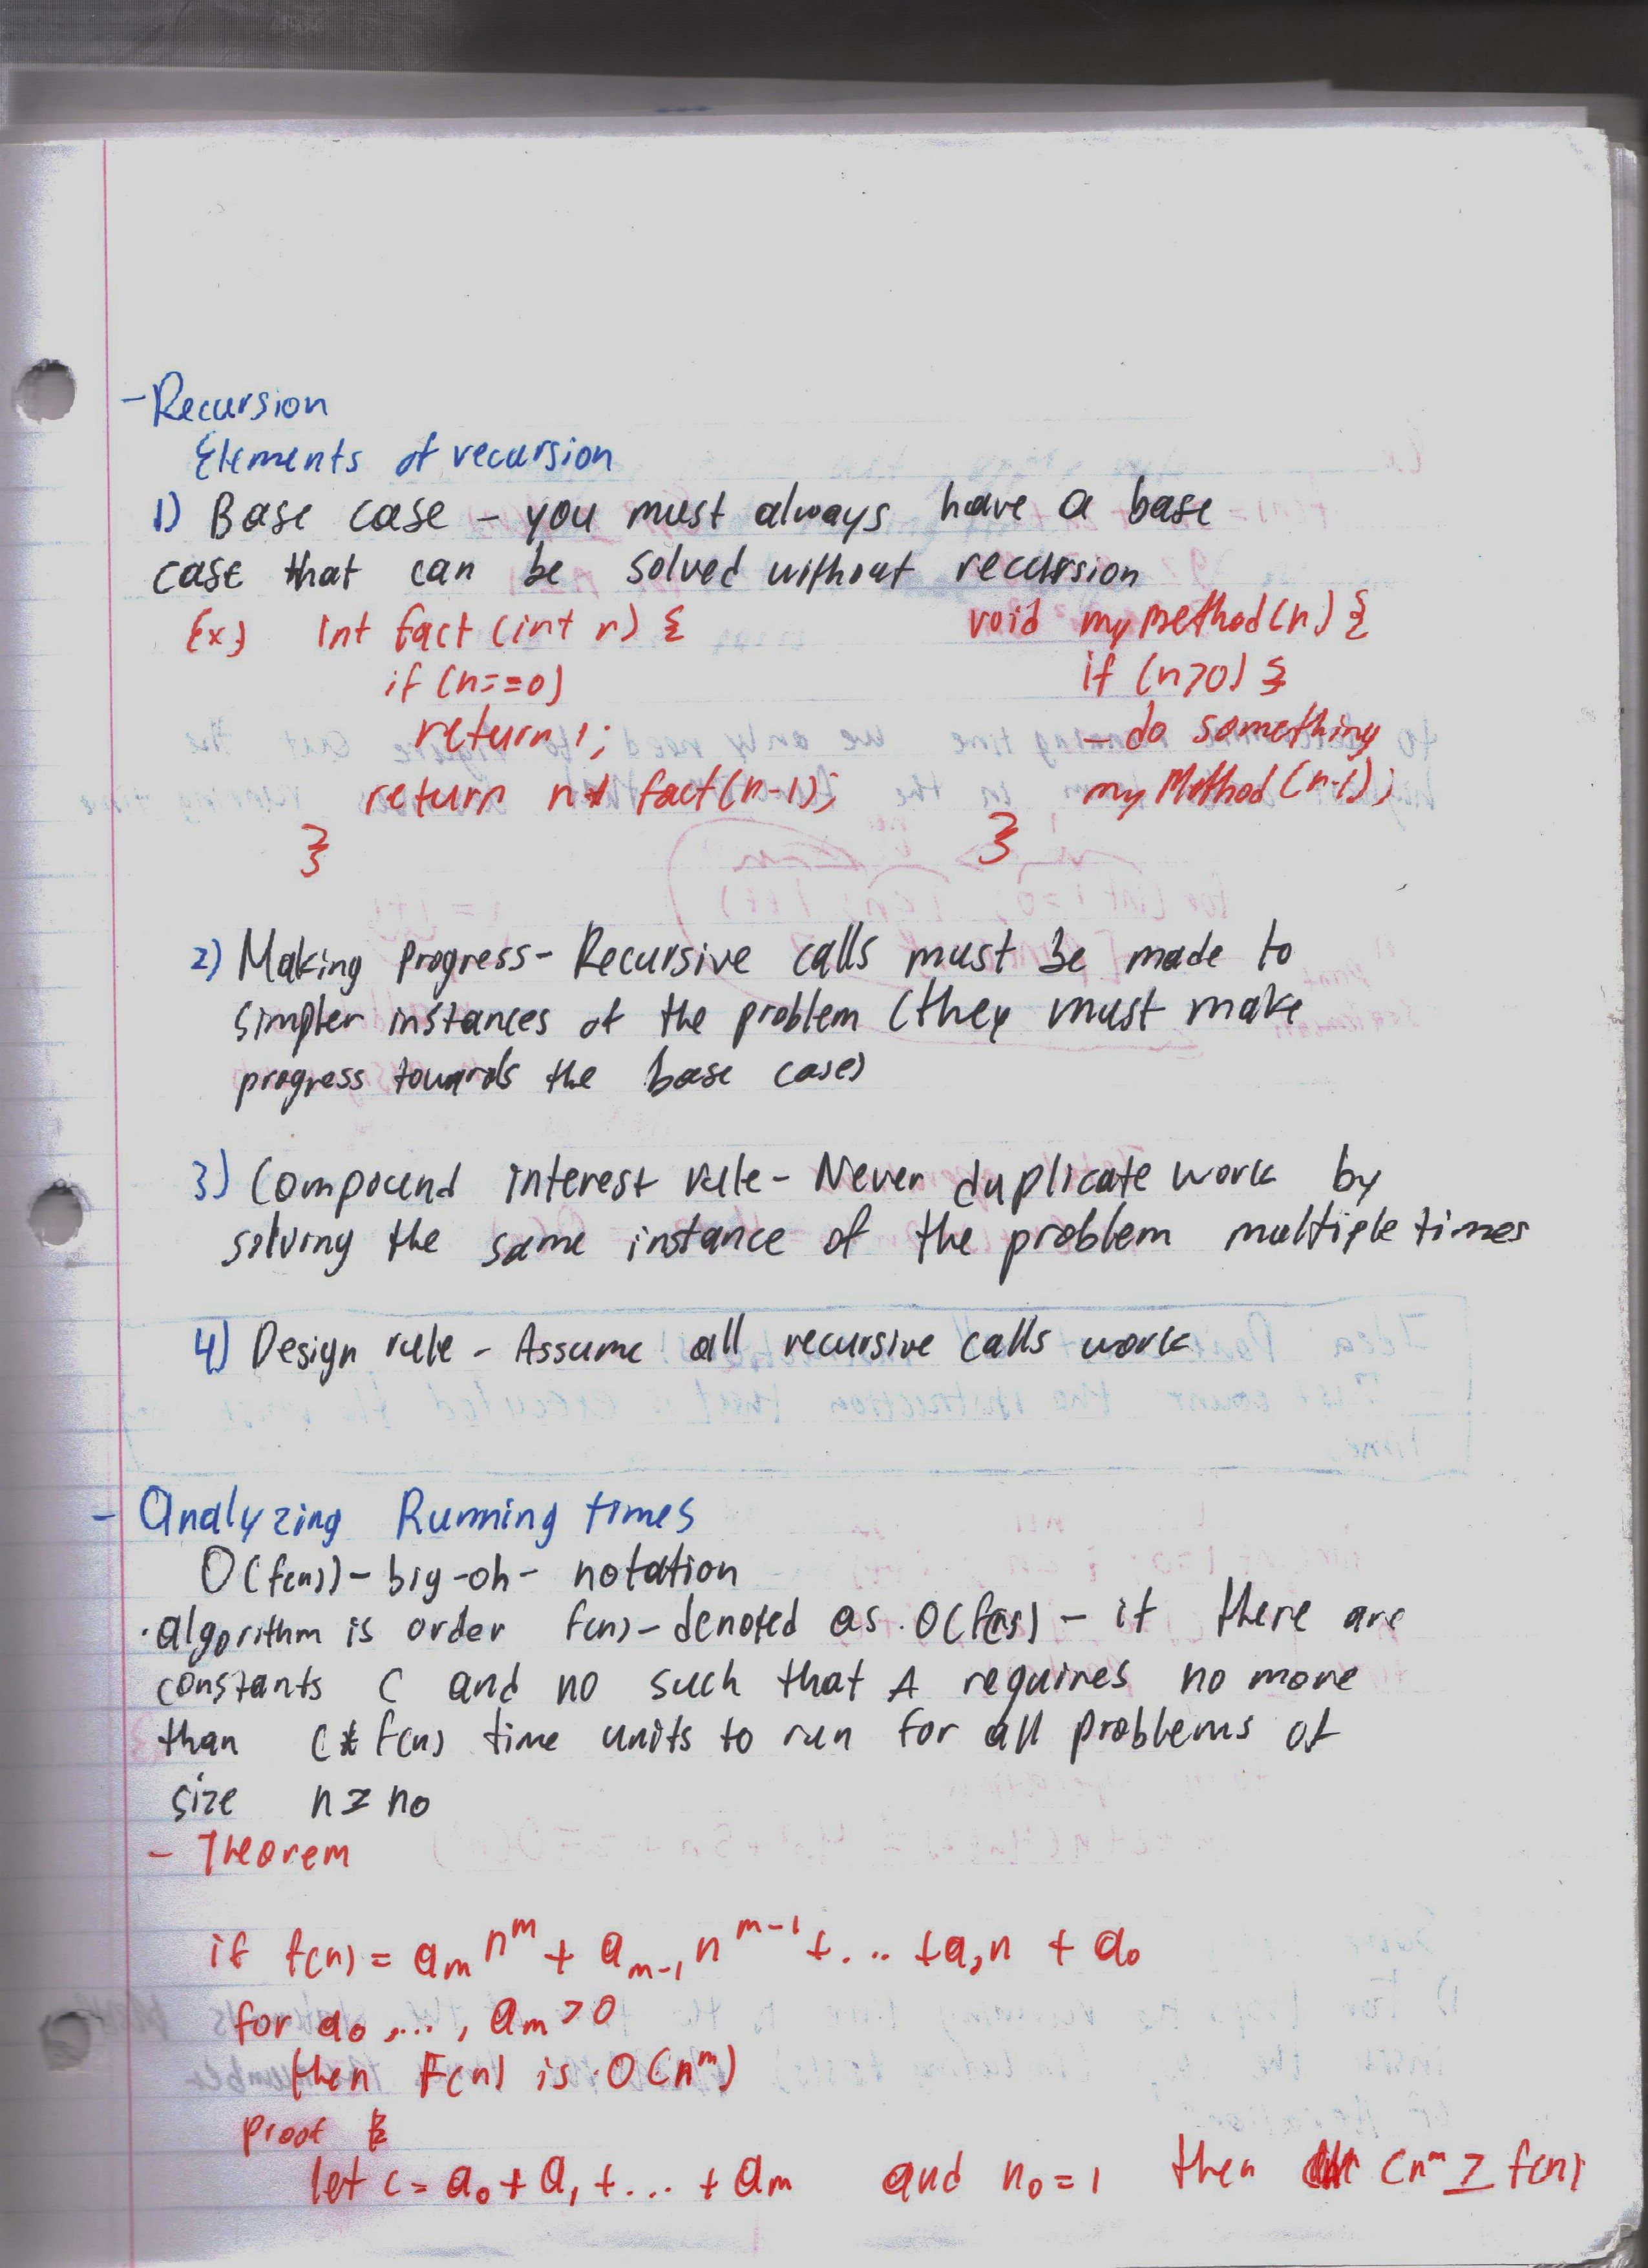 - Recursion
Elements of recursion
1) Base case - you must always have a base
case that can be solved without recursion
Ex) int fact (int n) {    void my method(n) {
if (n==0)    if (n>0) {
return 1;    - do something
return n * fact(n-1);    my Method (n-1);
}    }
2) Making Progress - Recursive calls must be made to
simpler instances of the problem (they must make
progress towards the base case)
3) Compound interest rule - Never duplicate work by
solving the same instance of the problem multiple times
4) Design rule - Assume all recursive calls work
- Analyzing Running times
O(f(n)) - big-oh- notation
· algorithm is order f(n) - denoted as O(f(n)) - if there are
constants C and n0 such that A requires no more
than C * f(n) time units to run for all problems of
size n ≥ n0
- Theorem
if f(n) = aₘ nᵐ + aₘ₋₁ nᵐ⁻¹ + ... + a₁n + a₀
for a₀, ..., aₘ > 0
then F(n) is O(nᵐ)
proof
let c = a₀ + a₁ + ... + aₘ and n₀ = 1 then cnᵐ ≥ f(n)